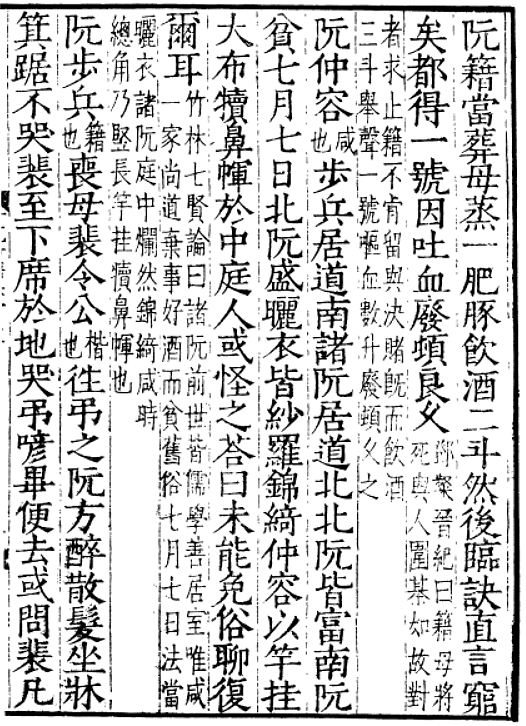 阮籍當葬母蒸一肥豚飲酒二斗然後臨訣直言窮
矣都得一號因吐血廢頓良乆
鄧粲晉紀曰籍母將
死與人圍棊如故對
者求止籍不肯留與決賭既而飲酒
三斗舉聲一號嘔血數升廢頓乆之
阮仲容咸也步兵居道南諸阮居道北北阮皆富南阮
貧七月七日北阮盛曬衣皆紗羅錦綺仲容以竿挂
大布犢鼻㡓於中庭人或怪之荅曰未能免俗聊復
爾耳
竹林七賢論曰諸阮前世皆儒學善居室唯咸
一家尚道棄事好酒而貧舊俗七月七日法當
曬衣諸阮庭中爛然錦綺咸時
總角乃竪長竿挂犢鼻㡓也
阮步兵籍也喪母裴令公楷也徃弔之阮方醉散髮坐牀
箕踞不哭裴至下席於地哭弔喭畢便去或問裴凡